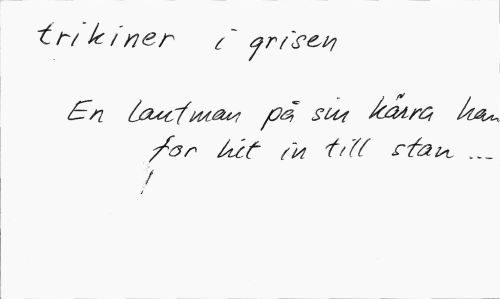 trikiner i grisen
En lantman på sin kärra han
for hit in till stan ...